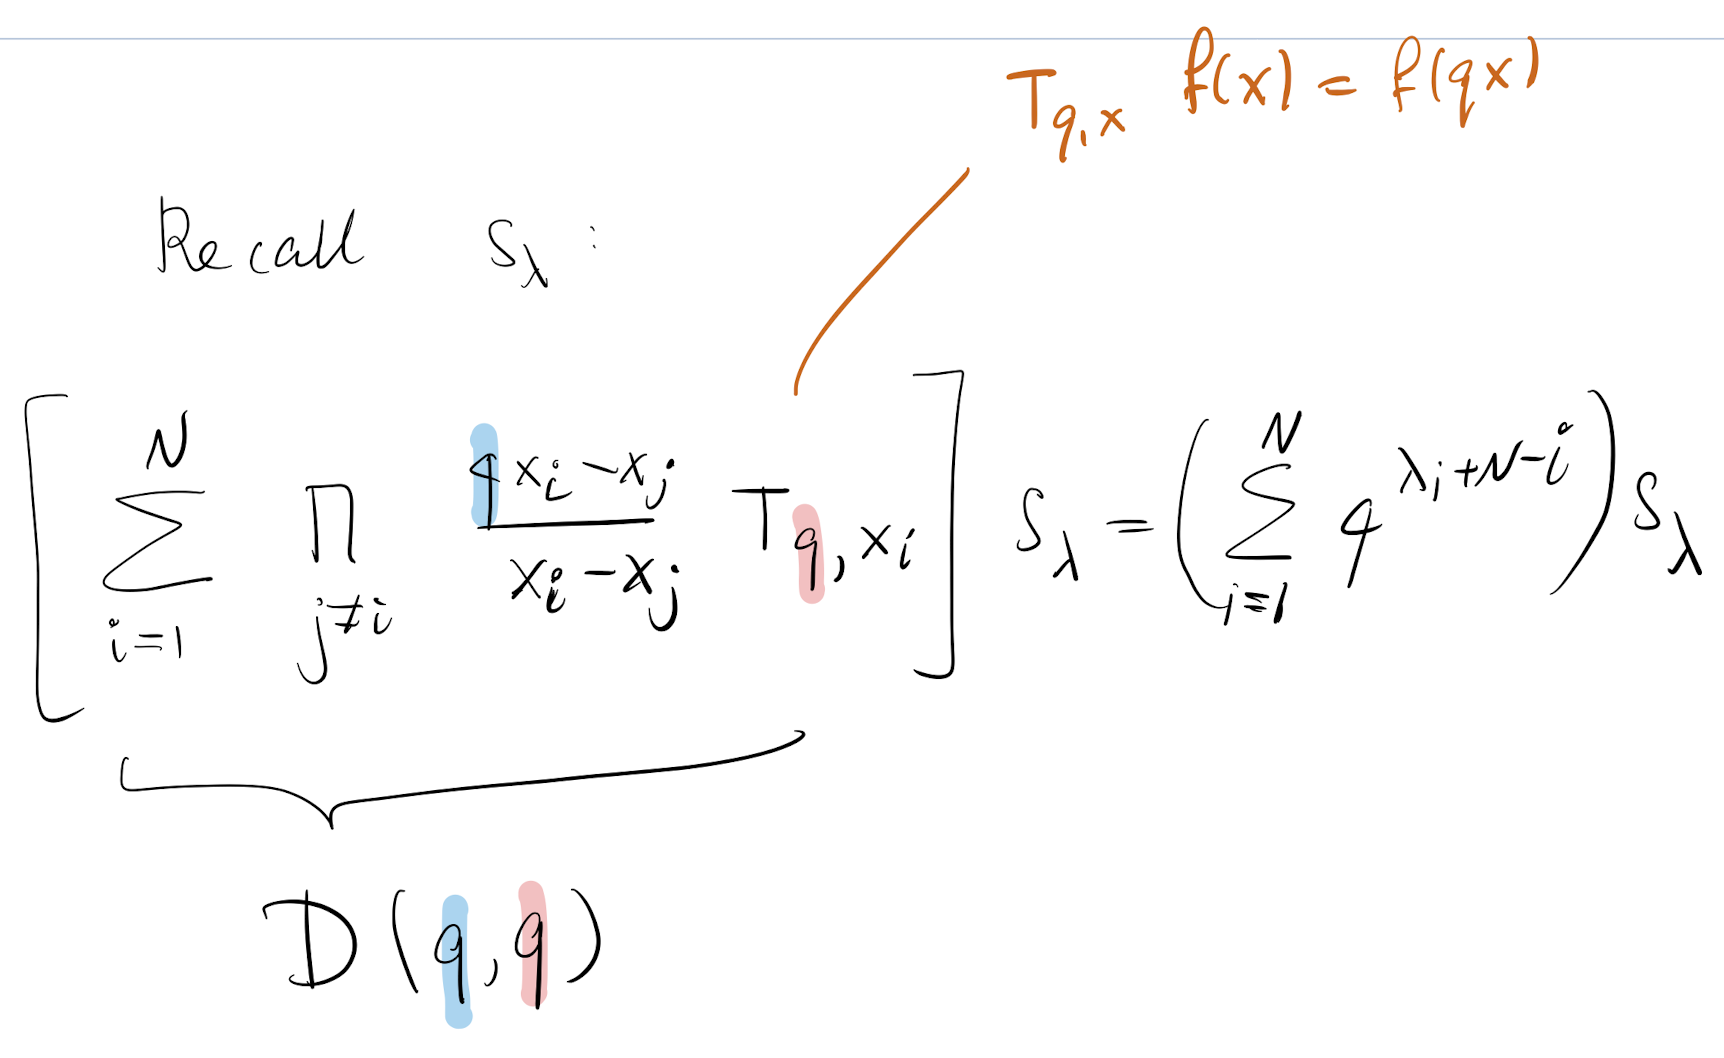 T_{q,x} f(x) = f(qx)
Recall s_λ :
[ \sum_{i=1}^{N} \prod_{j≠i} \frac{q x_i - x_j}{x_i - x_j} T_{q,x_i} ] s_λ = ( \sum_{i=1}^{N} q^{λ_i+N-i} ) s_λ
D(q,q)